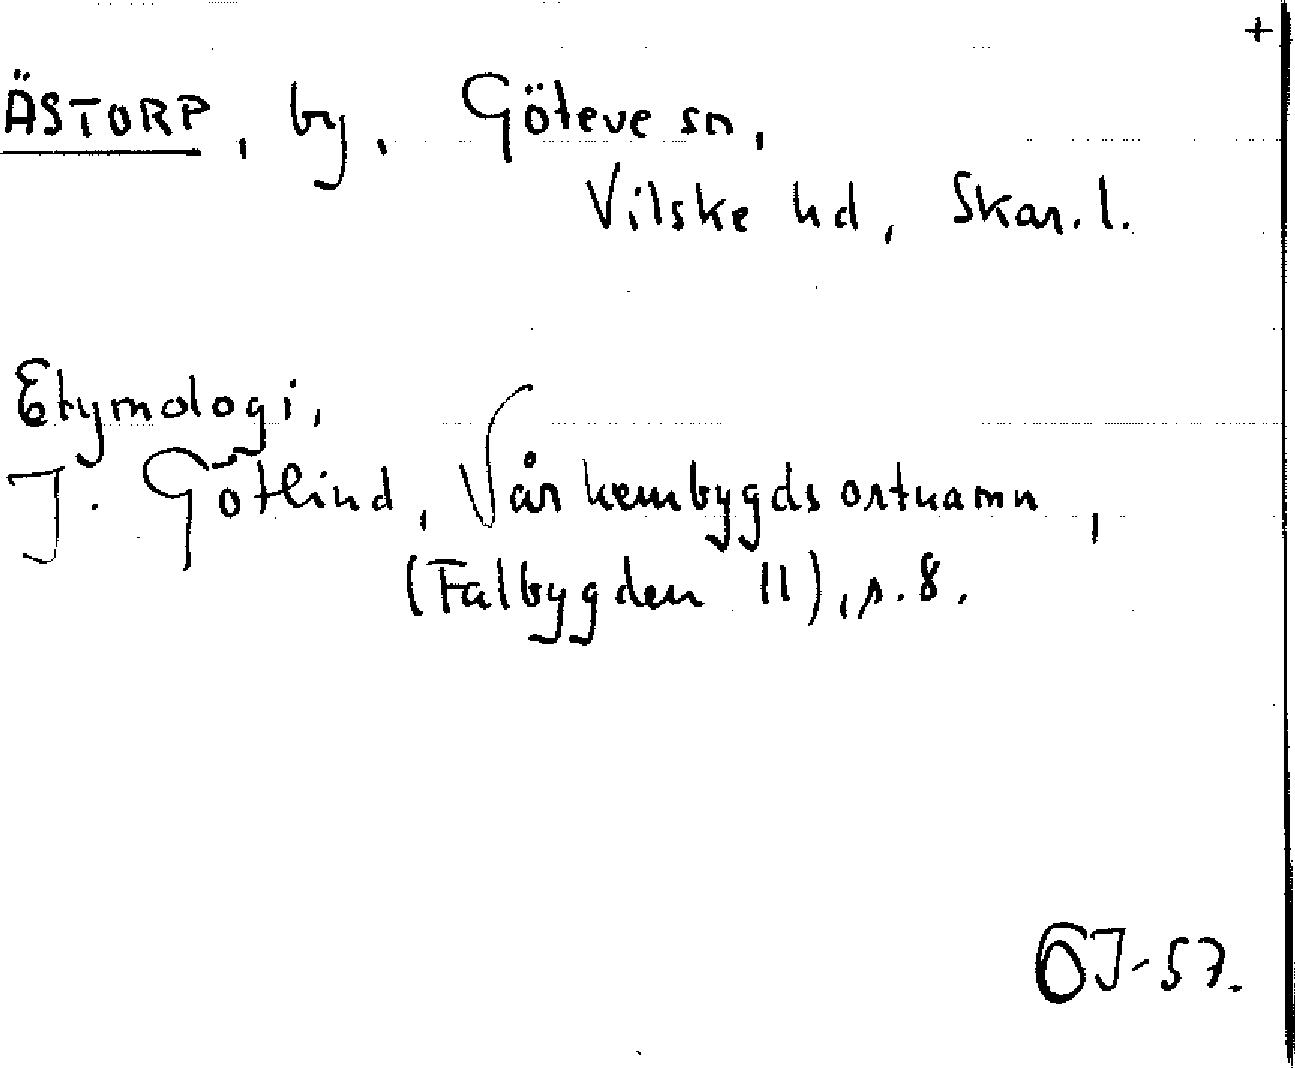 +
ÄSTORP, by, Göteve sn,
Vilske hd, Skar. l.
Etymologi,
J. Götlind, Vår hembygds ortnamn,
(Falbygden 11), s. 8.
ÖJ-57.